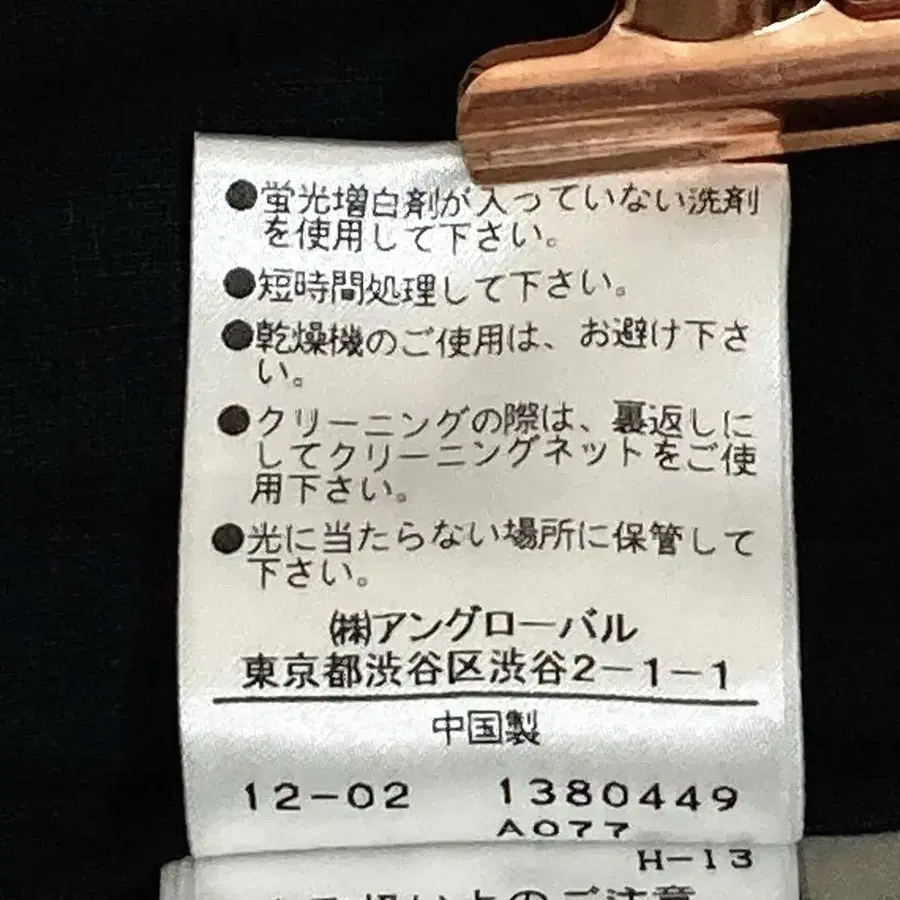 ●蛍光増白剤が入っていない洗剤
を使用して下さい。
●短時間処理して下さい。
●乾燥機のご使用は、お避け下さ
い。
●クリーニングの際は、裏返しに
してクリーニングネットをご使
用下さい。
●光に当たらない場所に保管して
下さい。
㈱アングローバル
東京都渋谷区渋谷2-1-1
中国製
12-02 1380449
A077
H-13
のご注意